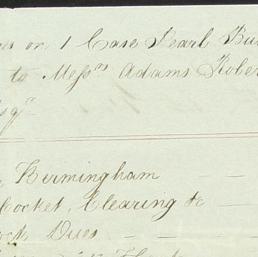 on 1 Case Pearl
to Messrs Adams
Esqr
Birmingham
Cocket, Clearing &c
Dock Dues